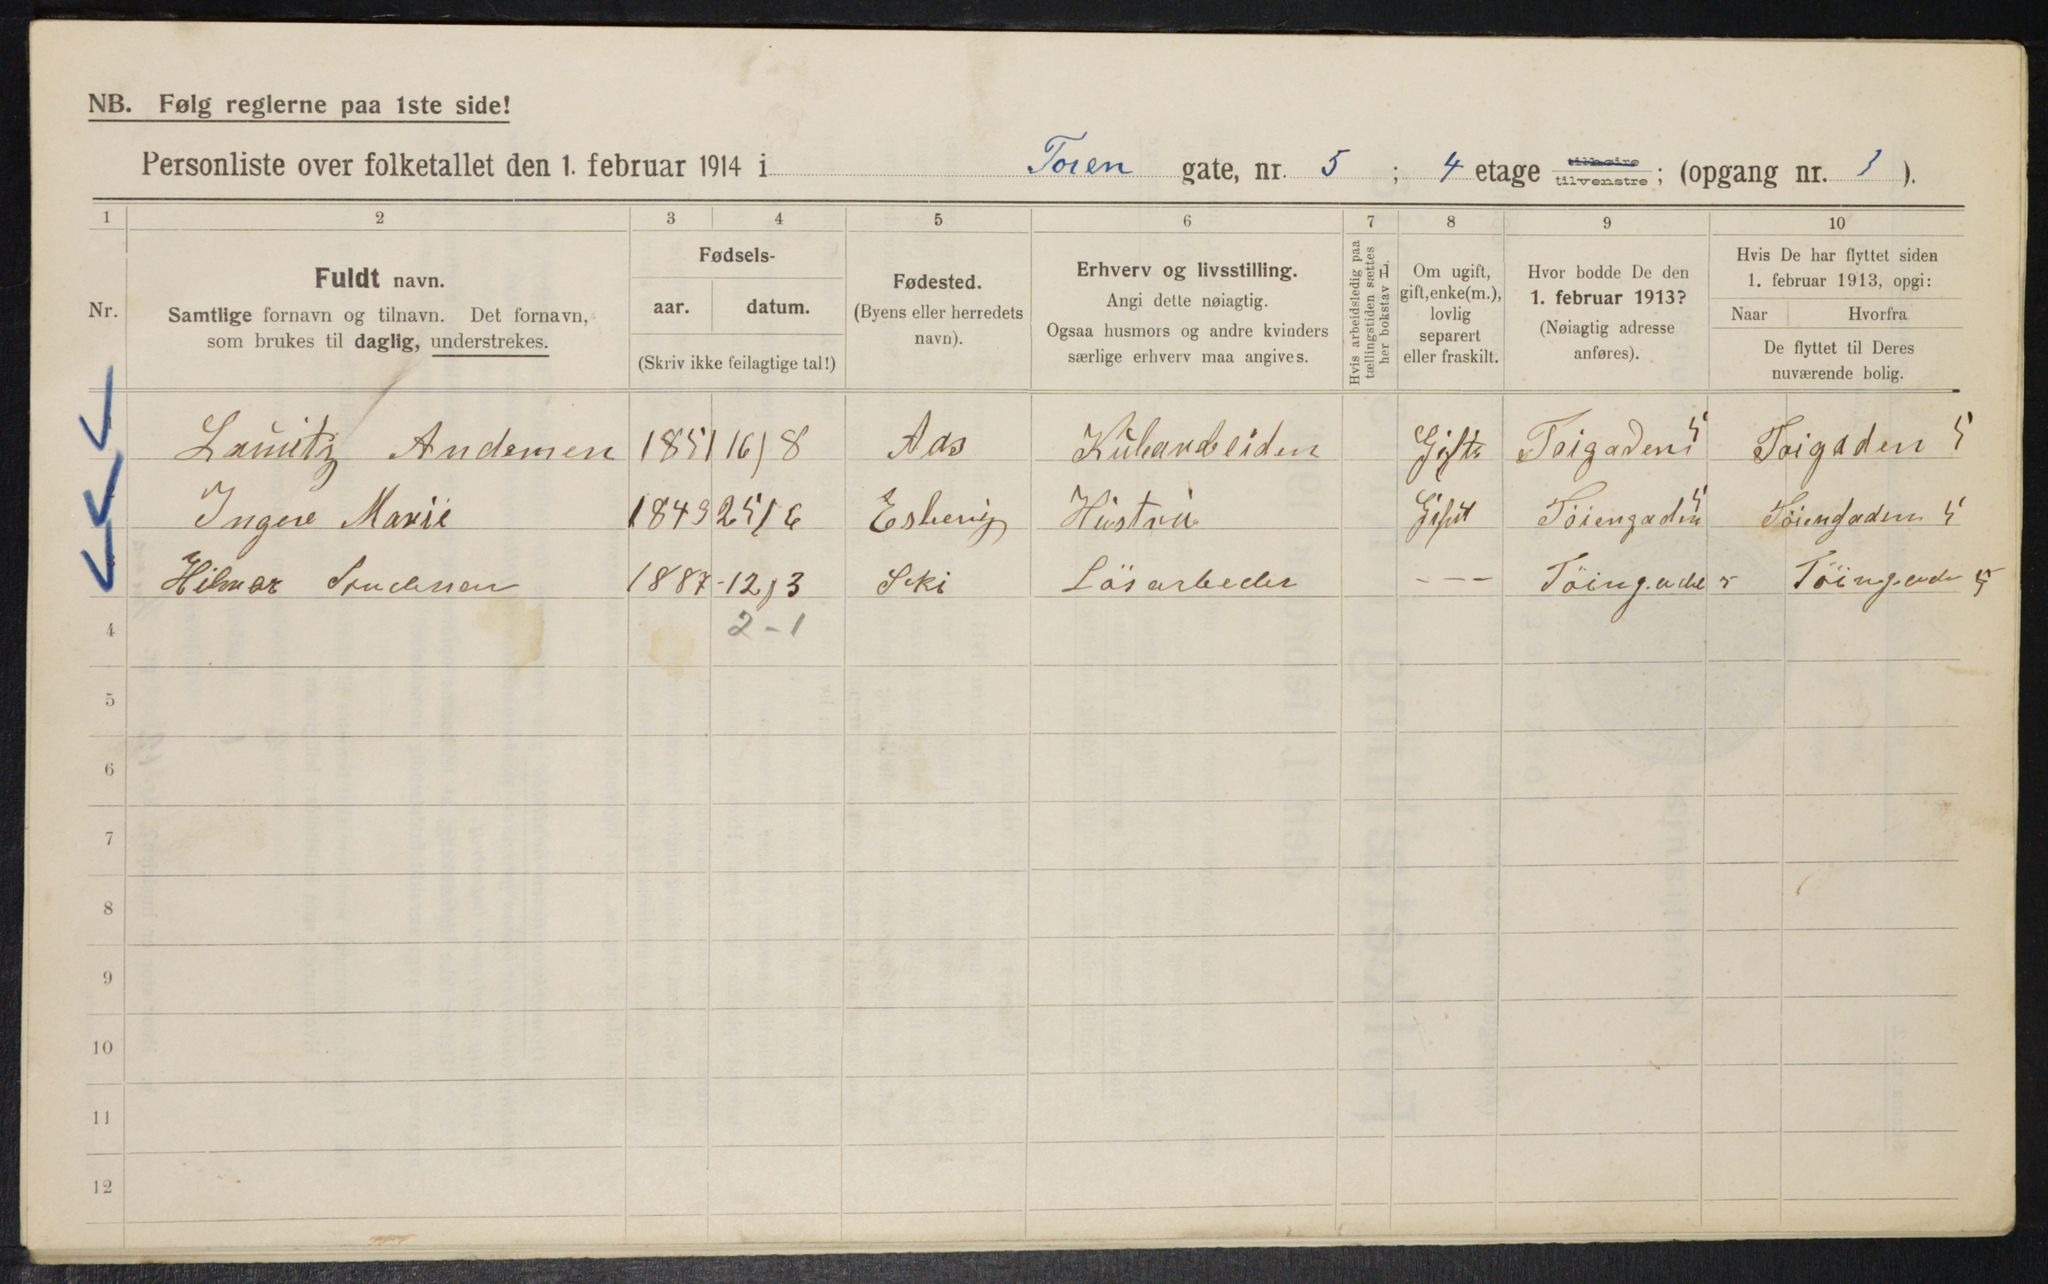 NB. Følg reglerne paa 1ste side!
Personliste over folketallet den 1. februar 1914 i Toien gate, nr. 5 ; 4 etage tilhøire tilvenstre ; (opgang nr. 1 ).
1 2 3 4 5 6 7 8 9 10
Nr.
Fuldt navn.
Samtlige fornavn og tilnavn. Det fornavn,
som brukes til daglig, understrekes.
Fødsels-
aar. datum.
(Skriv ikke feilagtige tal!)
Fødested.
(Byens eller herredets
navn).
Erhverv og livsstilling.
Angi dette nøiagtig.
Ogsaa husmors og andre kvinders
særlige erhverv maa angives.
Hvis arbeidsledig paa
tællingstiden sættes
her bokstav H.
Om ugift,
gift, enke(m.),
lovlig
separert
eller fraskilt.
Hvor bodde De den
1. februar 1913?
(Nøiagtig adresse
anføres).
Hvis De har flyttet siden
1. februar 1913, opgi:
Naar Hvorfra
De flyttet til Deres
nuværende bolig.
Lauritz Andersen 1851 16/8 Aas Gift Toigaden 5 Toigaden 5
Ingere Marie 1849 25/6 Esberig Hustru Gift Töiengaden 5 Töiengaden 5
Hilmar Andersen 1887 - 12/3 Ski Lösarbeder - - - Töingade 5 Töingade 5
2 - 1
4
5
6
7
8
9
10
11
12